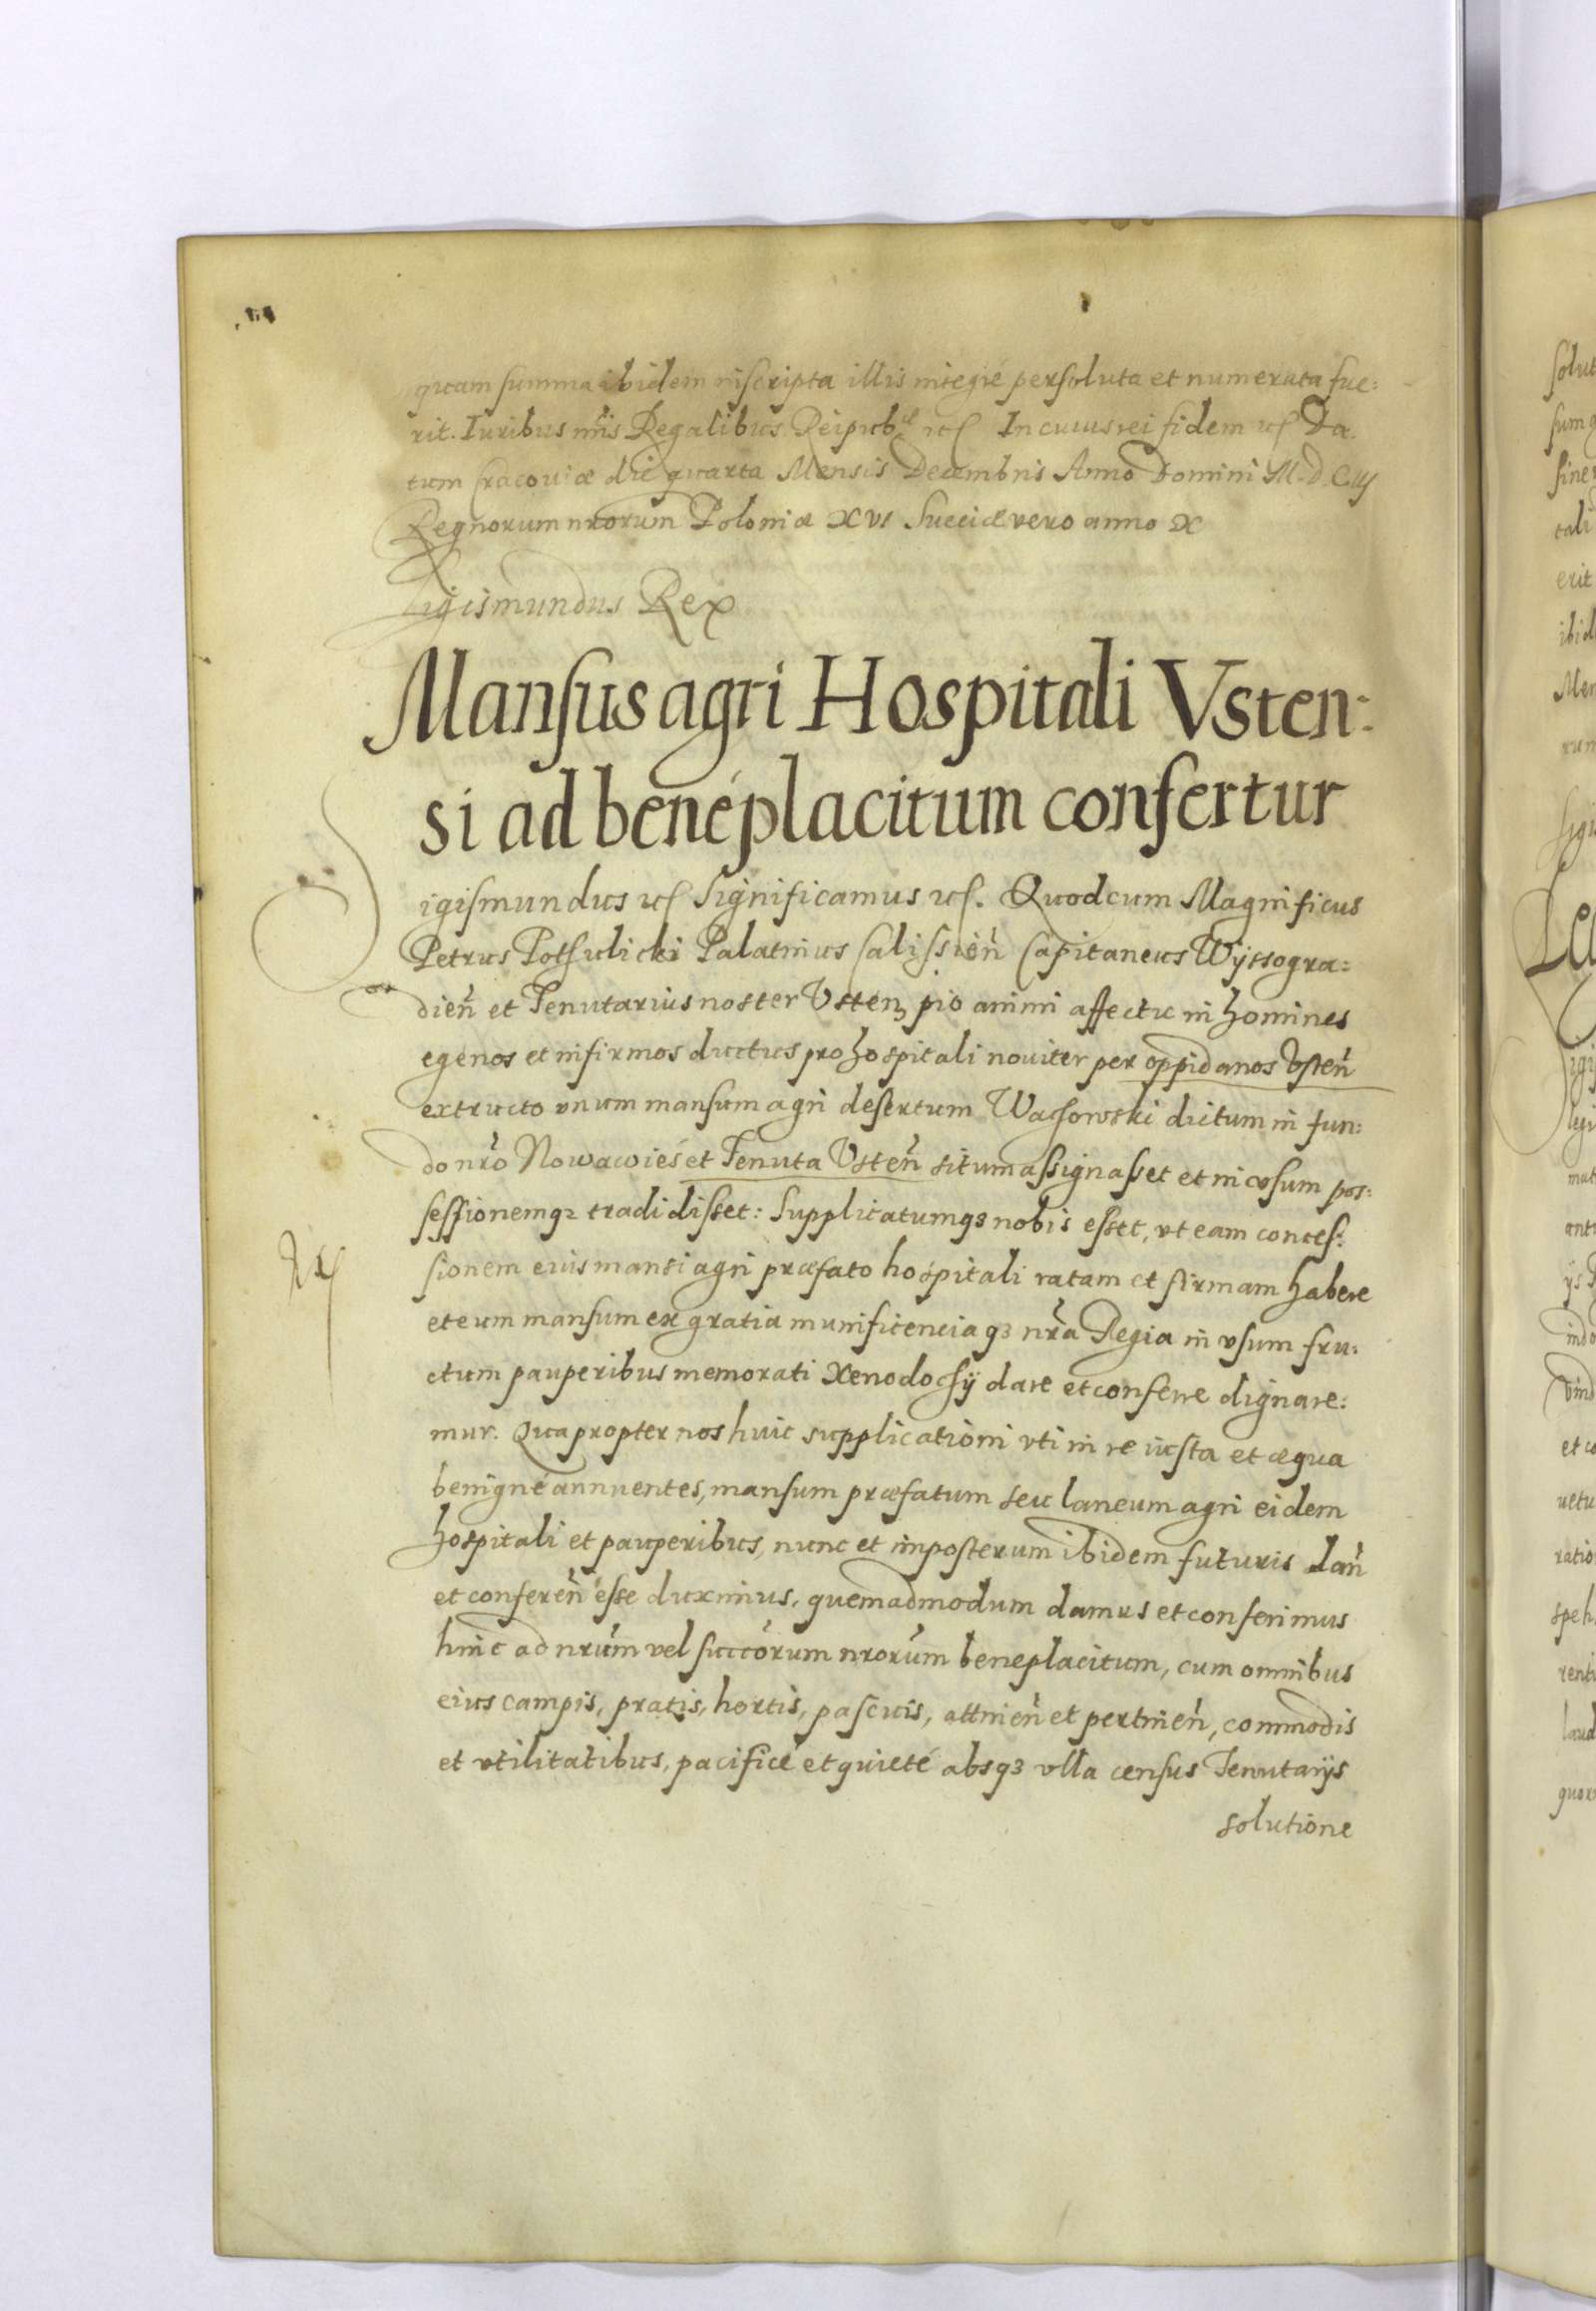 quam summa ibidem inscripta illis integré persoluta et numerata fue:
rit. Iuribus nr̃is Regalibus Reipub: etc In cuius rei fidem etc Da
tum Cracouiæ die quarta Mensis Decembris Anno Domini M.D.Ciij
Regnorum nrorum Poloniæ XVI Sueciæ vero anno X
Sigismundus Rex
Mansus agri Hospitali Vsten:
si ad benéplacitum confertur
Sigismundus etc Significamus etc. Quod cum Magnificus
Petrus Pothulicki Palatinus Calissien̄ Capitaneus Wyssogra:
dien̄ et Tenutarius noster Vsten, pio animi affectu in homines
egenos et infirmos ductus pro hospitali nouiter per oppidanos Vsten̄
extructo vnum mansum agri desertum Wachowski dictum in fun:
do nr̃o Nowawieś et Tenuta Vsten̄ situm assignasset et in vsum pos:
sessionemq3 tradidisset: Supplicatumq3 nobis esset, vt eam conces:
sionem eius mansi agri præfato hospitali ratam et firmam habere
et eum mansum ex gratia munificenciaq3 nr̃a Regia in vsum fru:
ctum pauperibus memorati Xenodochÿ dare et conferre dignare:
mur. Quapropter nos huic supplicationi vti in re iusta et æqua
benigné annuentes, mansum præfatum seu laneum agri eidem
hospitali et pauperibus, nunc et imposterum ibidem futuris dan̄
et conferen̄ esse duximus, quemadmodum damus et conferimus
hinc ad nr̃um vel succ̃orum nrorũm beneplacitum, cum omnibus
eius campis, pratis, hortis, pascuis, attinen̄ et pertinen̄, commodis
et vtilitatibus, pacificé et quieté absq3 vlla census Tenutarijs
solutione